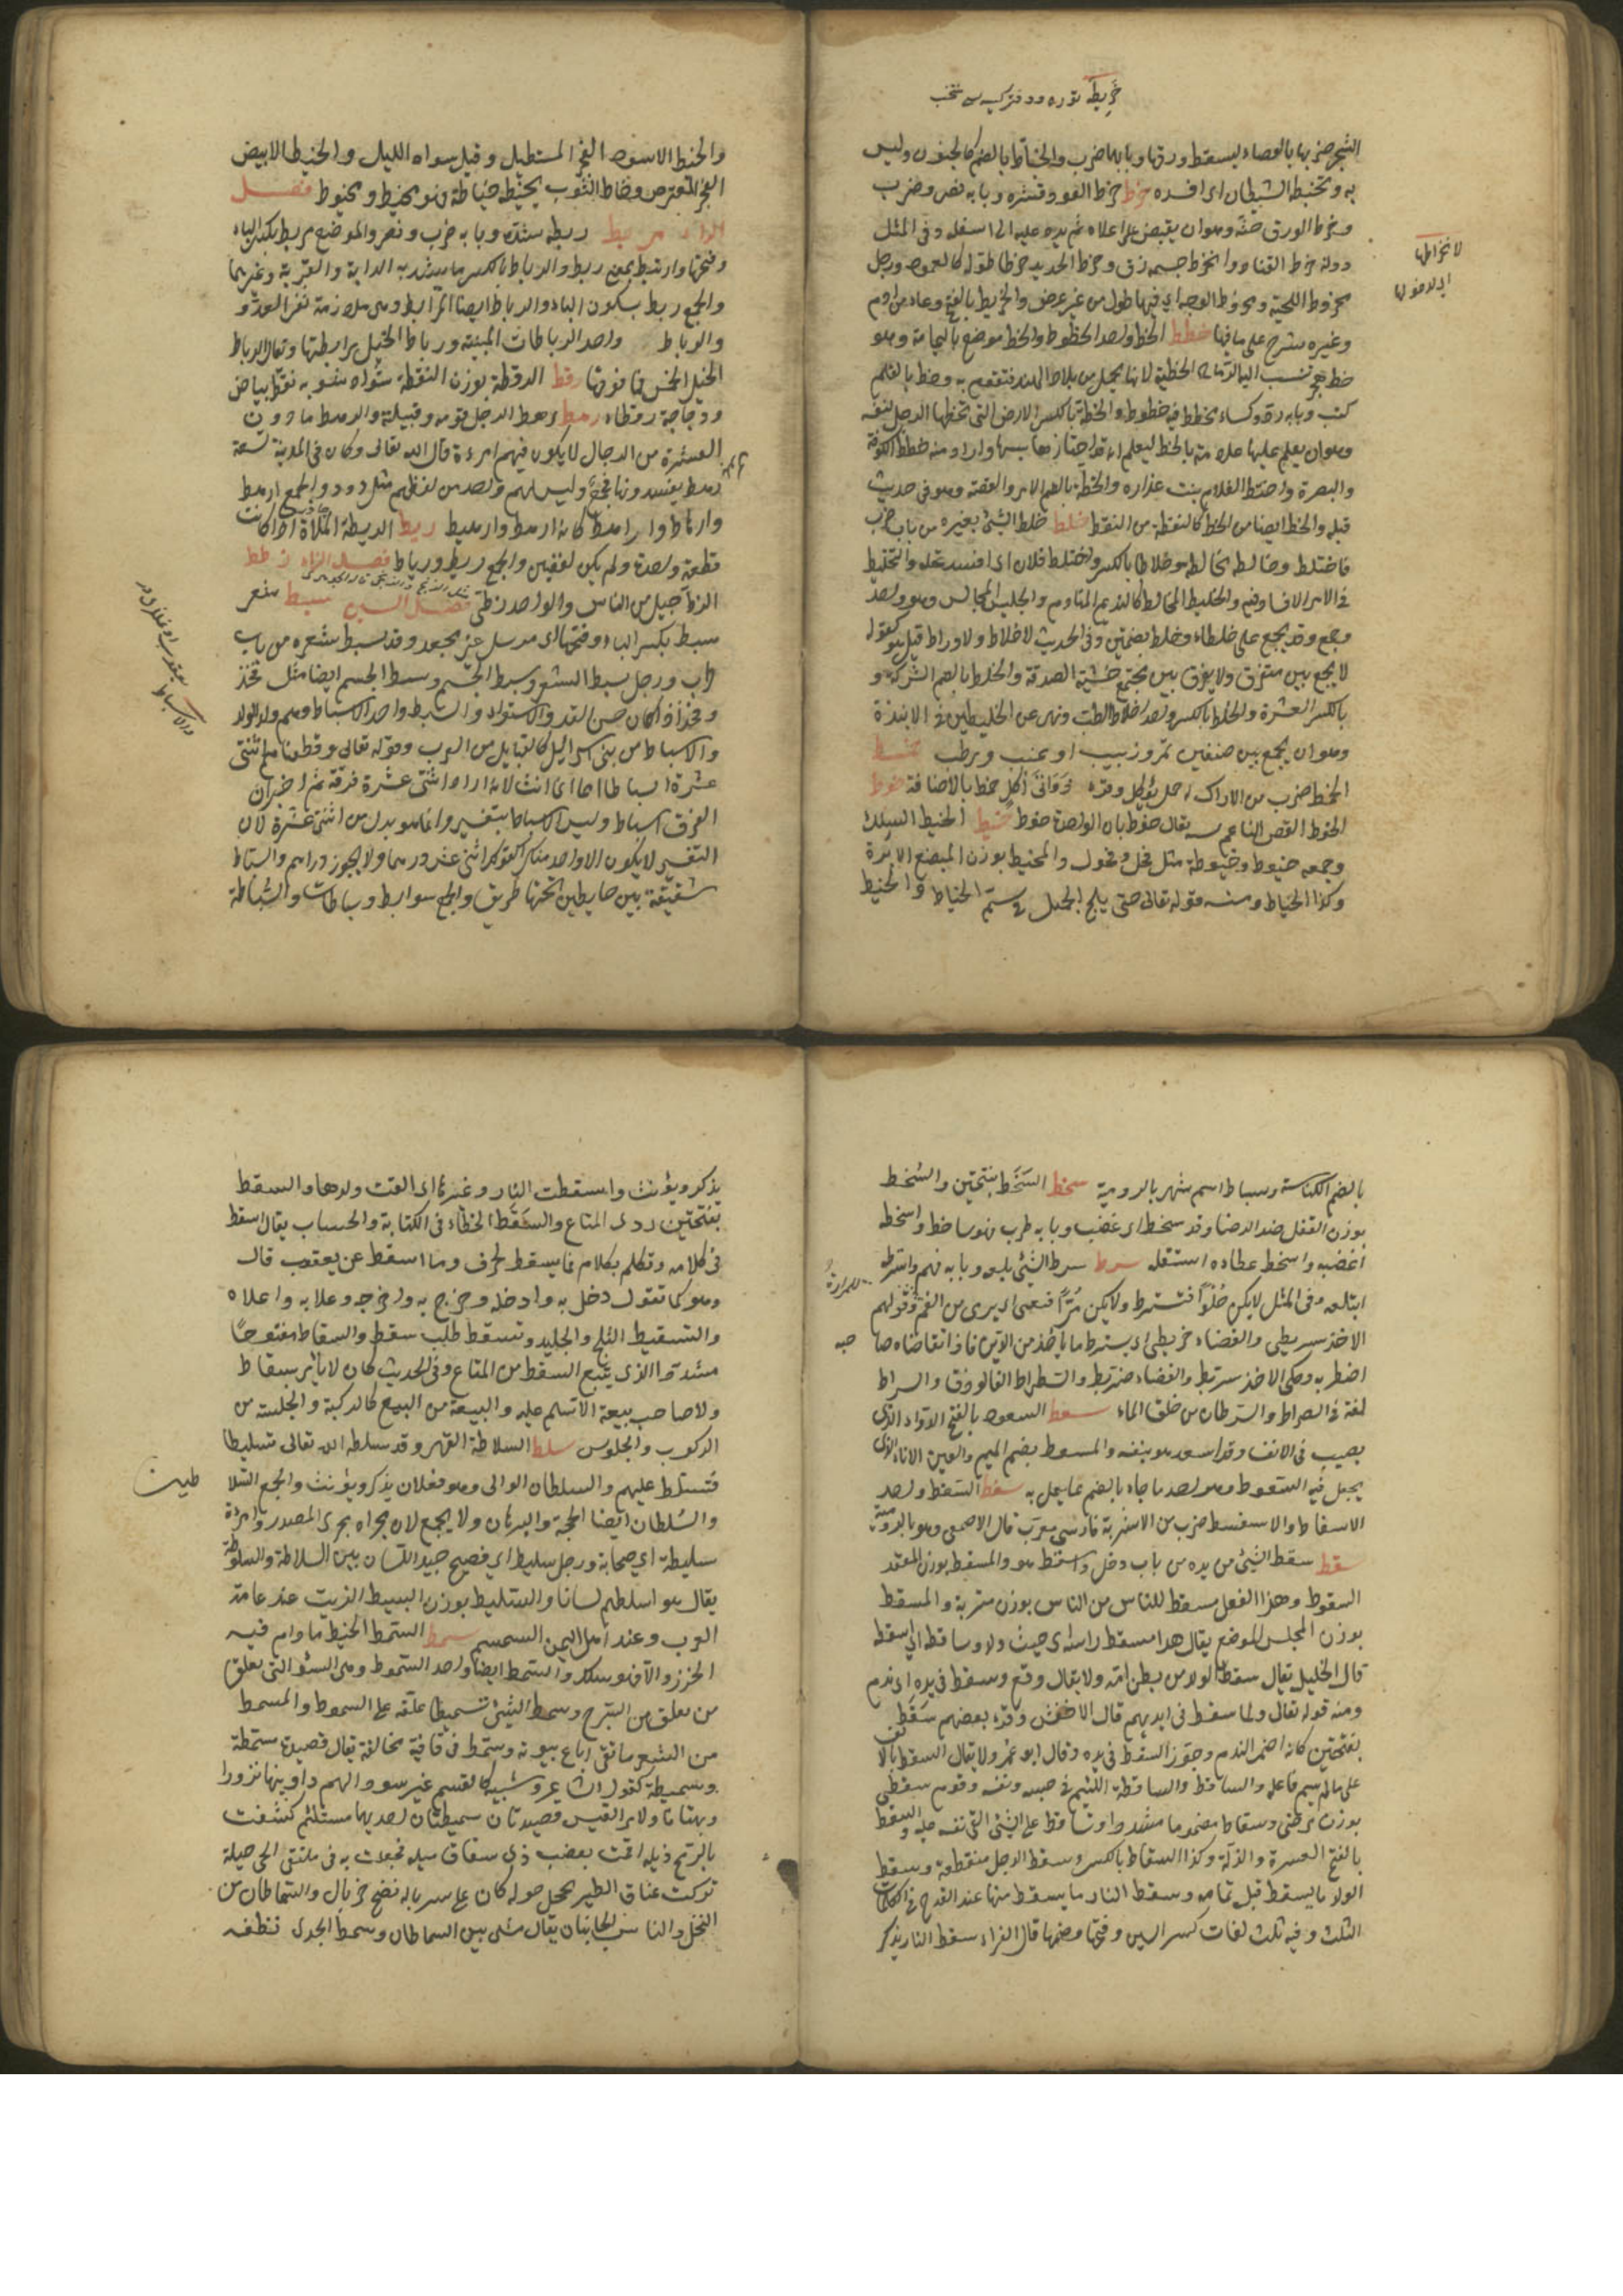 خريطة توره ودفتر كيسه سى منتخب
الشجر ضربها بالعصاء ليسقط ورقها وبابهما ضرب والخباط بالضم كالجنون وليس
به وتخبطه الشيطان اى افسده خرط خرط العود قشره وبابه نصر وضرب
وخرط الورق حتّه وهو ان يقبض على اعلاه ثم يمر يده عليه الى اسفله وفى المثل
دونه خرط القتاد وانخرط جسمه دق وخرط الحديد خرطا طوله كالعمود ورجل
مخروط اللحية ومخروط الوجه اى فيهما طول من غير عرض والخريطة بالفتح وعاء من ادم
وغيره يشرج على ما فيها خطط الخط واحد الخطوط والخط موضع باليمامة وهو
خط هجر تنسب اليه الرماح الخطية لانها تحمل من بلاد الهند فتقوم به وخط بالقلم
كتب وبابه رد وكساء مخطط فيه خطوط والخطة بالكسر الارض التى يختطها الرجل لنفسه
وهو ان يعلم عليها علامة بالخط ليعلم انه قد احتازها ليبنيها دارا ومنه خطط الكوفة
والبصرة واختط الغلام نبت عذاره والخطة بالضم الامر والقصة وهو فى حديث
قيلة والخط ايضا من الخط كالنقطة من النقط خلط خلط الشئ بغيره من باب ضرب
فاختلط وخالطه مخالطة وخلاطا بالكسر واختلط فلان اى افسد عقله والتخليط
فى الامر الافساد فيه والخليط المخالط كالنديم المنادم والجليس المجالس وهو واحد
وجمع وقد يجمع على خلطاء وخلط بضمتين وفى الحديث لا خلاط ولا وراط قيل هو كقوله
لا يجمع بين متفرق ولا يفرق بين مجتمع خشية الصدقة والخلطة بالضم الشركة و
بالكسر العشرة والخلط بالكسر واحد اخلاط الطيب ونهى عن الخليطين فى الانبذة
وهو ان يجمع بين صنفين تمر وزبيب او عنب ورطب خمط
الخمط ضرب من الاراك له حمل يؤكل وقرئ ذواتى اكل خمط بالاضافة خوط
الخوط الغصن الناعم لسنه يقال خوط بان الواحدة خوطة خيط الخيط السلك
وجمعه خيوط وخيوطة مثل فحل وفحول والمخيط بوزن المبضع الابرة
وكذا الخياط ومنه قوله تعالى حتى يلج الجمل فى سم الخياط والخيط
لانخراطها
اى لاخولها
والخيط الاسود الفجر المستطيل وقيل سواد الليل والخيط الابيض
الفجر المعترض وخاط الثوب يخيطه خياطة فهو مخيط ومخيوط فصل
الراء ربط ربطه شده وبابه ضرب ونصر والموضع مربط بكسر الباء
وفتحها وارتبط بمعنى ربط والرباط بالكسر ما يشد به الدابة والقربة وغيرهما
والجمع ربط بسكون الباء والرباط ايضا المرابطة وهى ملازمة ثغر العدو
والرباط واحد الرباطات المبنية ورباط الخيل مرابطتها ويقال الرباط
الخيل الخمس فما فوقها رقط الرقطة بوزن النقطة سواد يشوبه نقط بياض
ودجاجة رقطاء رهط رهط الرجل قومه وقبيلته والرهط ما دون
العشرة من الرجال لا يكون فيهم امرءة قال الله تعالى وكان فى المدينة تسعة
رهط يفسدون فجمع وليس لهم واحد من لفظهم مثل ذود والجمع ارهط
وارهاط واراهط كانه ارهط واراهيط ريط الريطة الملاءة اذا كانت
قطعة واحدة ولم يكن لفقين والجمع ريط ورياط فصل الزاء زطط
الزط جيل من الناس والواحد زطى فصل السين سبط شعر
سبط بكسر الباء وفتحها اى مرسل غير جعد وقد سبط شعره من باب
طرب ورجل سبط الشعر وسبط الجسم وسبط الجسم ايضا مثل فخذ
وفخذ اذا كان حسن القد والاستواء والسبط واحد الاسباط وهم ولد الولد
والاسباط من بنى اسرائيل كالقبايل من العرب وقوله تعالى وقطعناهم اثنتى
عشرة اسباطا امما انما انث لانه اراد اثنتى عشرة فرقة ثم اخبر ان
الفرق اسباط وليس الاسباط بتفسير وانما هو بدل من اثنتى عشرة لان
التفسير لا يكون الا واحدا منكرا كقولك اثنى عشر درهما ولا يجوز دراهم والساباط
سقيفة بين حايطين تحتها طريق والجمع سوابيط وساباطات والسباطة
بالضم الكناسة وسباط اسم شهر بالرومية سخط السخط بفتحتين والسخط
بوزن القفل ضد الرضا وقد سخط اى غضب وبابه طرب فهو ساخط واسخطه
اغضبه واسخط عطاءه استقله سرط سرط الشئ بلعه وبابه فهم واسترطه
ابتلعه وفى المثل لا يكن حلوا فتسترط ولا يكن مرا فتعقى اى يرمى من الفم وقولهم
الاخذ سريطى والقضاء ضريطى اى يسترط ما يأخذ من الدين فاذا تقاضاه صا
حبه
اضرط به وحكى الاخذ سريط والقضاء ضريط والسرطراط الفالوذق والسراط
لغة فى الصراط والسرطان من خلق الماء سعط السعوط بالفتح الدواء الذى
يصب فى الانف وقد اسعد هو بنفسه والمسعط بضم الميم والعين الاناء الذى
يجعل فيه السعوط وهو احد ما جاء بالضم مما يعمل به سفط السفط واحد
الاسفاط والاسفنط ضرب من الاشربة فارسى معرب قال الاصمعى وهو بالرومية
سقط سقط الشئ من يده من باب دخل واسقطه هو والمسقط بوزن المقعد
السقوط وهذا الفعل مسقط للناس من الناس بوزن متربة والمسقط
بوزن المجلس الموضع يقال هذا مسقط راسه اى حيث ولد وساقطه اى اسقطه
قال الخليل يقال سقط الولد من بطن امه ولا يقال وقع وسقط فى يده اى ندم
ومنه قوله تعالى ولما سقط فى ايديهم قال الاخفش وقرء بعضهم سقط
بفتحتين كانه اضمر الندم وجوز اسقط فى يده وقال ابو عمرو لا يقال اسقط بالالف
على ما لم يسم فاعله والساقط والساقطة اللئيم فى حسبه ونفسه وقوم سقطى
بوزن مرضى وسقاط مضموما مشددا وتساقط على الشئ القى نفسه عليه والسقطة
بالفتح العثرة والزلة وكذا السقاط بالكسر وسقط الرمل منقطعه وسقط
الولد ما يسقط قبل تمامه وسقط النار ما يسقط منها عند القدح فى الكلمات
الثلث وفيه ثلث لغات كسر السين وفتحها وضمها قال الفراء سقط النار يذكر
يذكر ويؤنث واسقطت الناقة وغيرها اى القت ولدها والسقط
بفتحتين ردى المتاع والسقط الخطاء فى الكتابة والحساب يقال اسقط
فى كلامه وتكلم بكلام فما يسقط بحرف وما اسقط عن يعقوب قال
وهو كما تقول دخل به وادخله وخرج به واخرجه وعلا به واعلاه
والتسقيط الثلج والجليد وتسقط طلب سقطه والسقاط مفتوحا
مشددا الذى يبيع السقط من المتاع وفى الحديث كان لا يأتى بسقاط
ولا صاحب بيعة الا سلم عليه والبيعة من البيع كالركبة والجلسة من
الركوب والجلوس سلط السلاطة القهر وقد سلطه الله تعالى تسليطا
فتسلط عليهم والسلطان الوالى وهو فعلان يذكر ويؤنث والجمع السلا
طين
والسلطان ايضا الحجة والبرهان ولا يجمع لان مجراه مجرى المصدر وامرءة
سليطة اى صخابة ورجل سليط اى فصيح حديد اللسان بين السلاطة والسلوطة
يقال هو اسلطهم لسانا والسليط بوزن البسيط الزيت عند عامة
العرب وعند اهل اليمن السمسم سمط السمط الخيط ما دام فيه
الخرز والا فهو سلك والسمط ايضا واحد السموط وهى السيور التى تعلق
من السرج وسمط الشئ تسميطا علقه على السموط والمسمط
من الشعر ما قفى ارباع بيوته وسمط فى قافية مخالفة يقال قصيدة مسمطة
وسميطة كقول الشاعر وشيبة كالقسم غير سود اللمم داويتها بالكتم زورا
وبهتانا ولامرء القيس قصيدتان سمطيتان احديهما ومستلئم كشفت
بالرمح ذيله اقمت بعضب ذى سفاسق ميله فجعت به فى ملتقى الحى خيله
تركت عتاق الطير تحجل حوله كان على سرباله نضح جريال والسماطان من
النخل والناس الجانبان يقال مشى بين السماطين وسمط الجدى نظفه